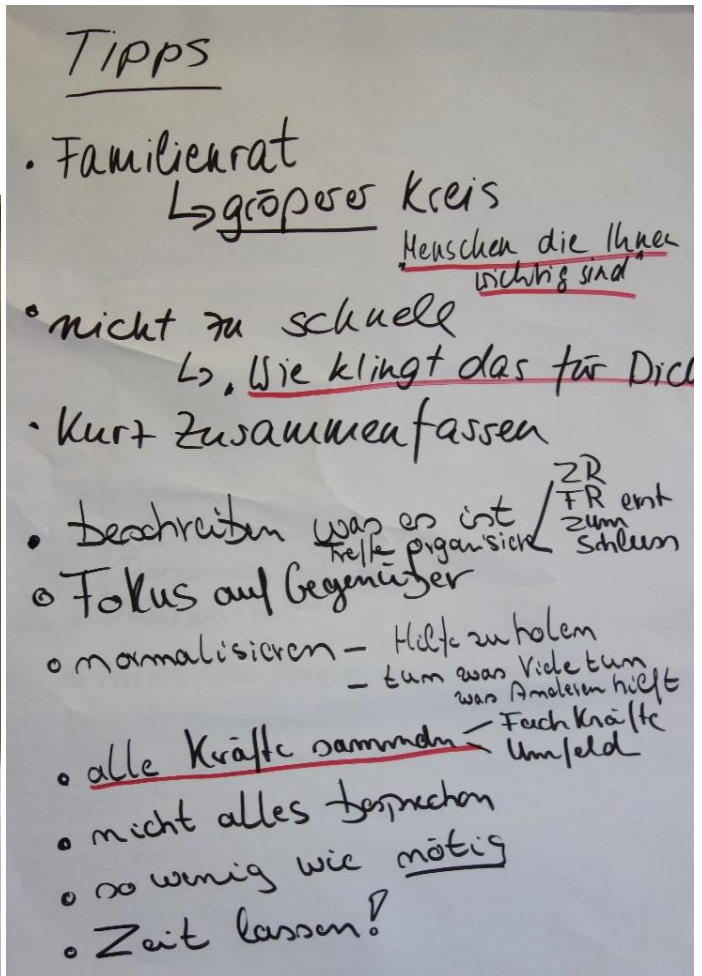 Tipps
• Familienrat
↳ größerer Kreis
"Menschen die Ihnen
wichtig sind"
• nicht zu schnell
↳ "Wie klingt das für Dich
• Kurz zusammenfassen
• beschreiben was es ist
ZR
FR erst
zum
Schluss
Treffen organisieren
• Fokus auf Gegenüber
• normalisieren – Hilfe zu holen
– tun was Viele tun
was Anderen hilft
• alle Kräfte sammeln – Fachkräfte
Umfeld
• nicht alles besprechen
• so wenig wie nötig
• Zeit lassen!